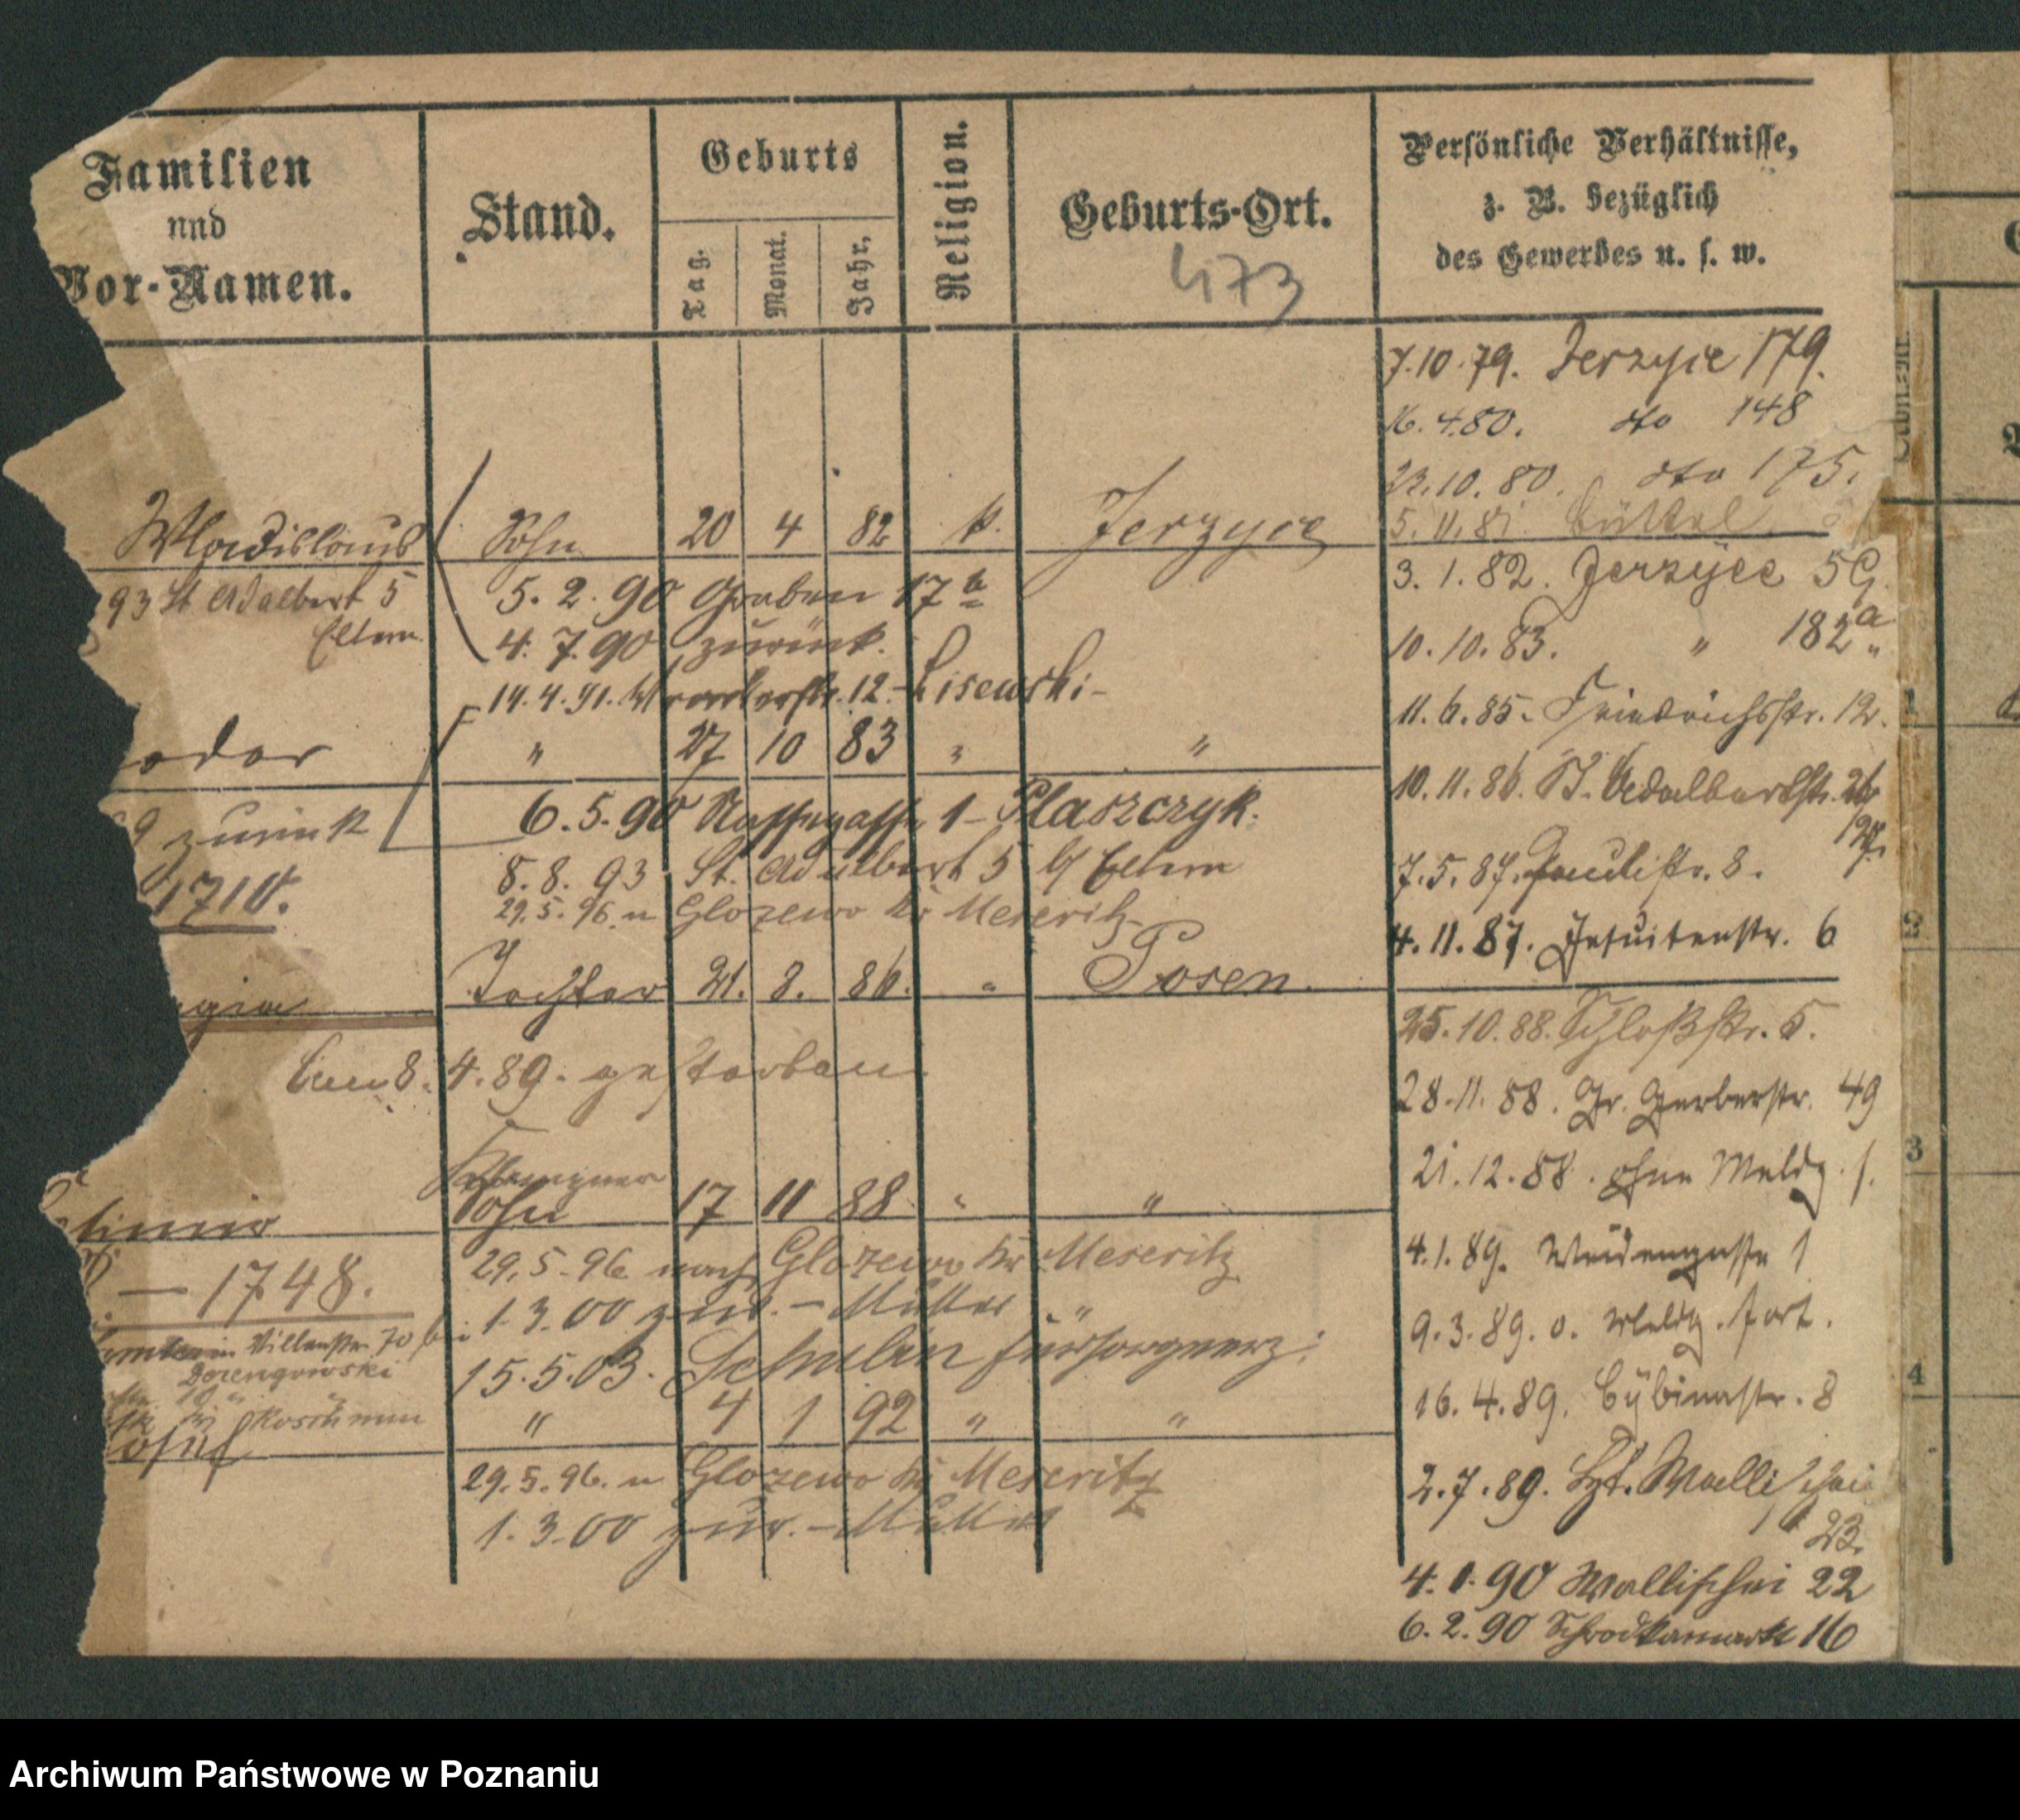 Familien
und
Vor-Namen.
Stand.
Geburts
Tag.
Monat.
Jahr.
Religion.
Geburts-Ort.
473
Persönliche Verhältnisse,
z. B. bezüglich
des Gewerbes u. s. w.
Wladislaus Sohn 20 4 82 k. Jerzyce
93 St Adalbert 5
Eltern
5. 2. 90 Graben 17 b
4. 7. 90 zurück.
14. 4. 91. 12. - Lisewski -
odor " 27 10 83 " "
9 zurück
6. 5. 90 Nassegasse 1 - Plaszczyk.
1710.
8. 8. 93 St. Adalbert 5 b/ Eltern
29. 5. 96. n Glozewo Kr Meseritz
Tochter 21. 8. 86. " Posen.
8. 4. 89. gestorben
Sohn 17 11 88 " "
— 1748.
29. 5. 96 nach Glozewo Kr Meseritz
1. 3. 00 zur. - Mutter "
15. 5. 03. Schubin
Villenstr. 70 bei
Dorengowski
Koschmin
" 4 1 92 " "
29. 5. 96. n Glozewo Kr Meseritz
1. 3. 00 zur. - Mutter
7. 10. 79. Jerzyce 179.
16. 4. 80. dto 148
22. 10. 80. dto 175.
5. 11. 81.
3. 1. 82. Jerzyce 5 G.
10. 10. 83. " 182 a
11. 6. 85. Friedrichsstr. 12.
10. 11. 86. St. Adalbertstr. 26/
7. 5. 87. Paulistr. 8.
4. 11. 87. Jesuitenstr. 6
25. 10. 88. Schloßstr. 5.
28. 11. 88. Gr. Gerberstr. 49
21. 12. 88. ohne Meldg. f.
4. 1. 89. Weidengasse 1
9. 3. 89. o. Meldg. fort.
16. 4. 89. Cybinastr. 8
2. 7. 89. Wallischei
23.
4. 1. 90 Wallischei 22
6. 2. 90 Schrodkamarkt 16
1
2
3
4
Archiwum Państwowe w Poznaniu